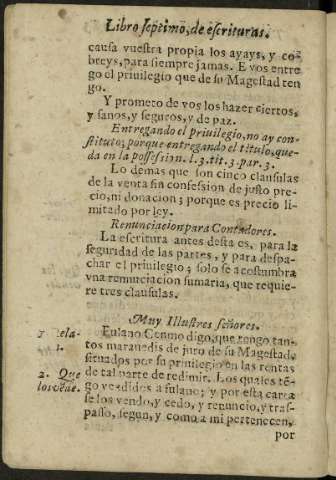 Libro septimo, de escrituras.
causa vuestra propia los ayays, y co-
breys, para siempre jamas. E vos entre
go el priuilegio que de su Magestad ten
go.
Y prometo de vos los hazer ciertos,
y sanos, y seguros, y de paz.
Entregando el priuilegio, no ay con-
stituto; porque entregando el titulo, que-
da en la possession. l. 3. tit. 3. par. 3.
Lo demas que son cinco clausulas
de la venta sin confession de justo pre-
cio, ni donacion; porque es precio li-
mitado por ley.
Renunciacion para Contadores.
La escritura antes desta es, para la
seguridad de las partes, y para despa-
char el priuilegio; solo se acostumbra
vna renunciacion sumaria, que requie-
re tres clausulas.
Muy Illustres señores.
Fulano Como digo, que tengo tan-
tos marauedis de juro de su Magestad,
situados por su priuilegio en las rentas
2. Que
de tal parte de redimir. Los quales tē-
go vendidos a fulano; y por esta carta
se los vendo, y cedo, y renuncio, y tras-
passo, segun, y como a mi pertenecen,
por